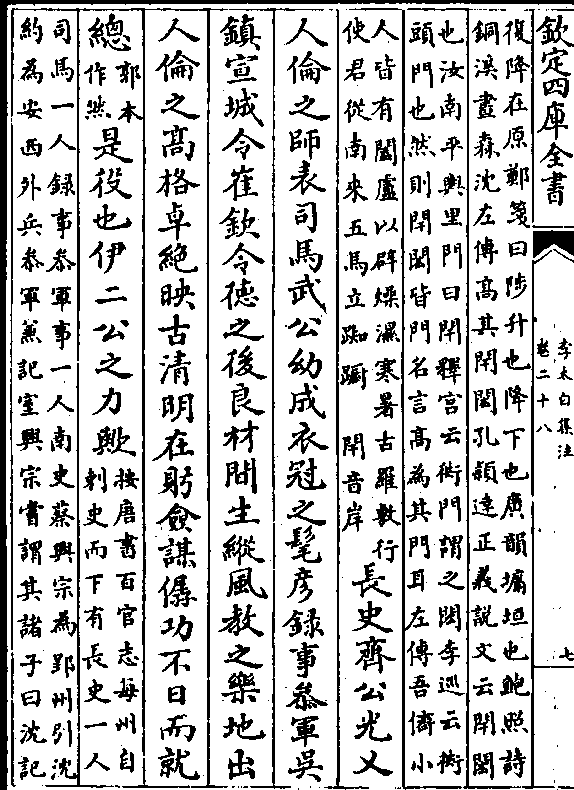 欽定四庫全書
李太白集注
卷二十八
七
復降在原鄭箋曰陟升也降下也廣韻墉垣也鮑照詩
銅溪晝森沈左傳高其閈閎孔穎達正義說文云閈閭
也汝南平輿里門曰閈釋宮云衖門謂之閎李巡云衖
頭門也然則閈閎皆門名言高為其門耳左傳吾儕小
人皆有闔廬以辟燥濕寒暑古羅敷行
使君從南來五馬立踟躕 閈音岸
長史齊公光乂
人倫之師表司馬武公幼成衣冠之髦彥錄事參軍吳
鎮宣城令崔欽令德之後良材間生縱風教之樂地出
人倫之高格卓絶映古清明在躬僉謀僝功不日而就
總
郭本
作然
是役也伊二公之力歟
按唐書百官志每州自
刺史而下有長史一人
司馬一人錄事參軍事一人南史蔡興宗為郢州引沈
約為安西外兵參軍兼記室興宗嘗謂其諸子曰沈記